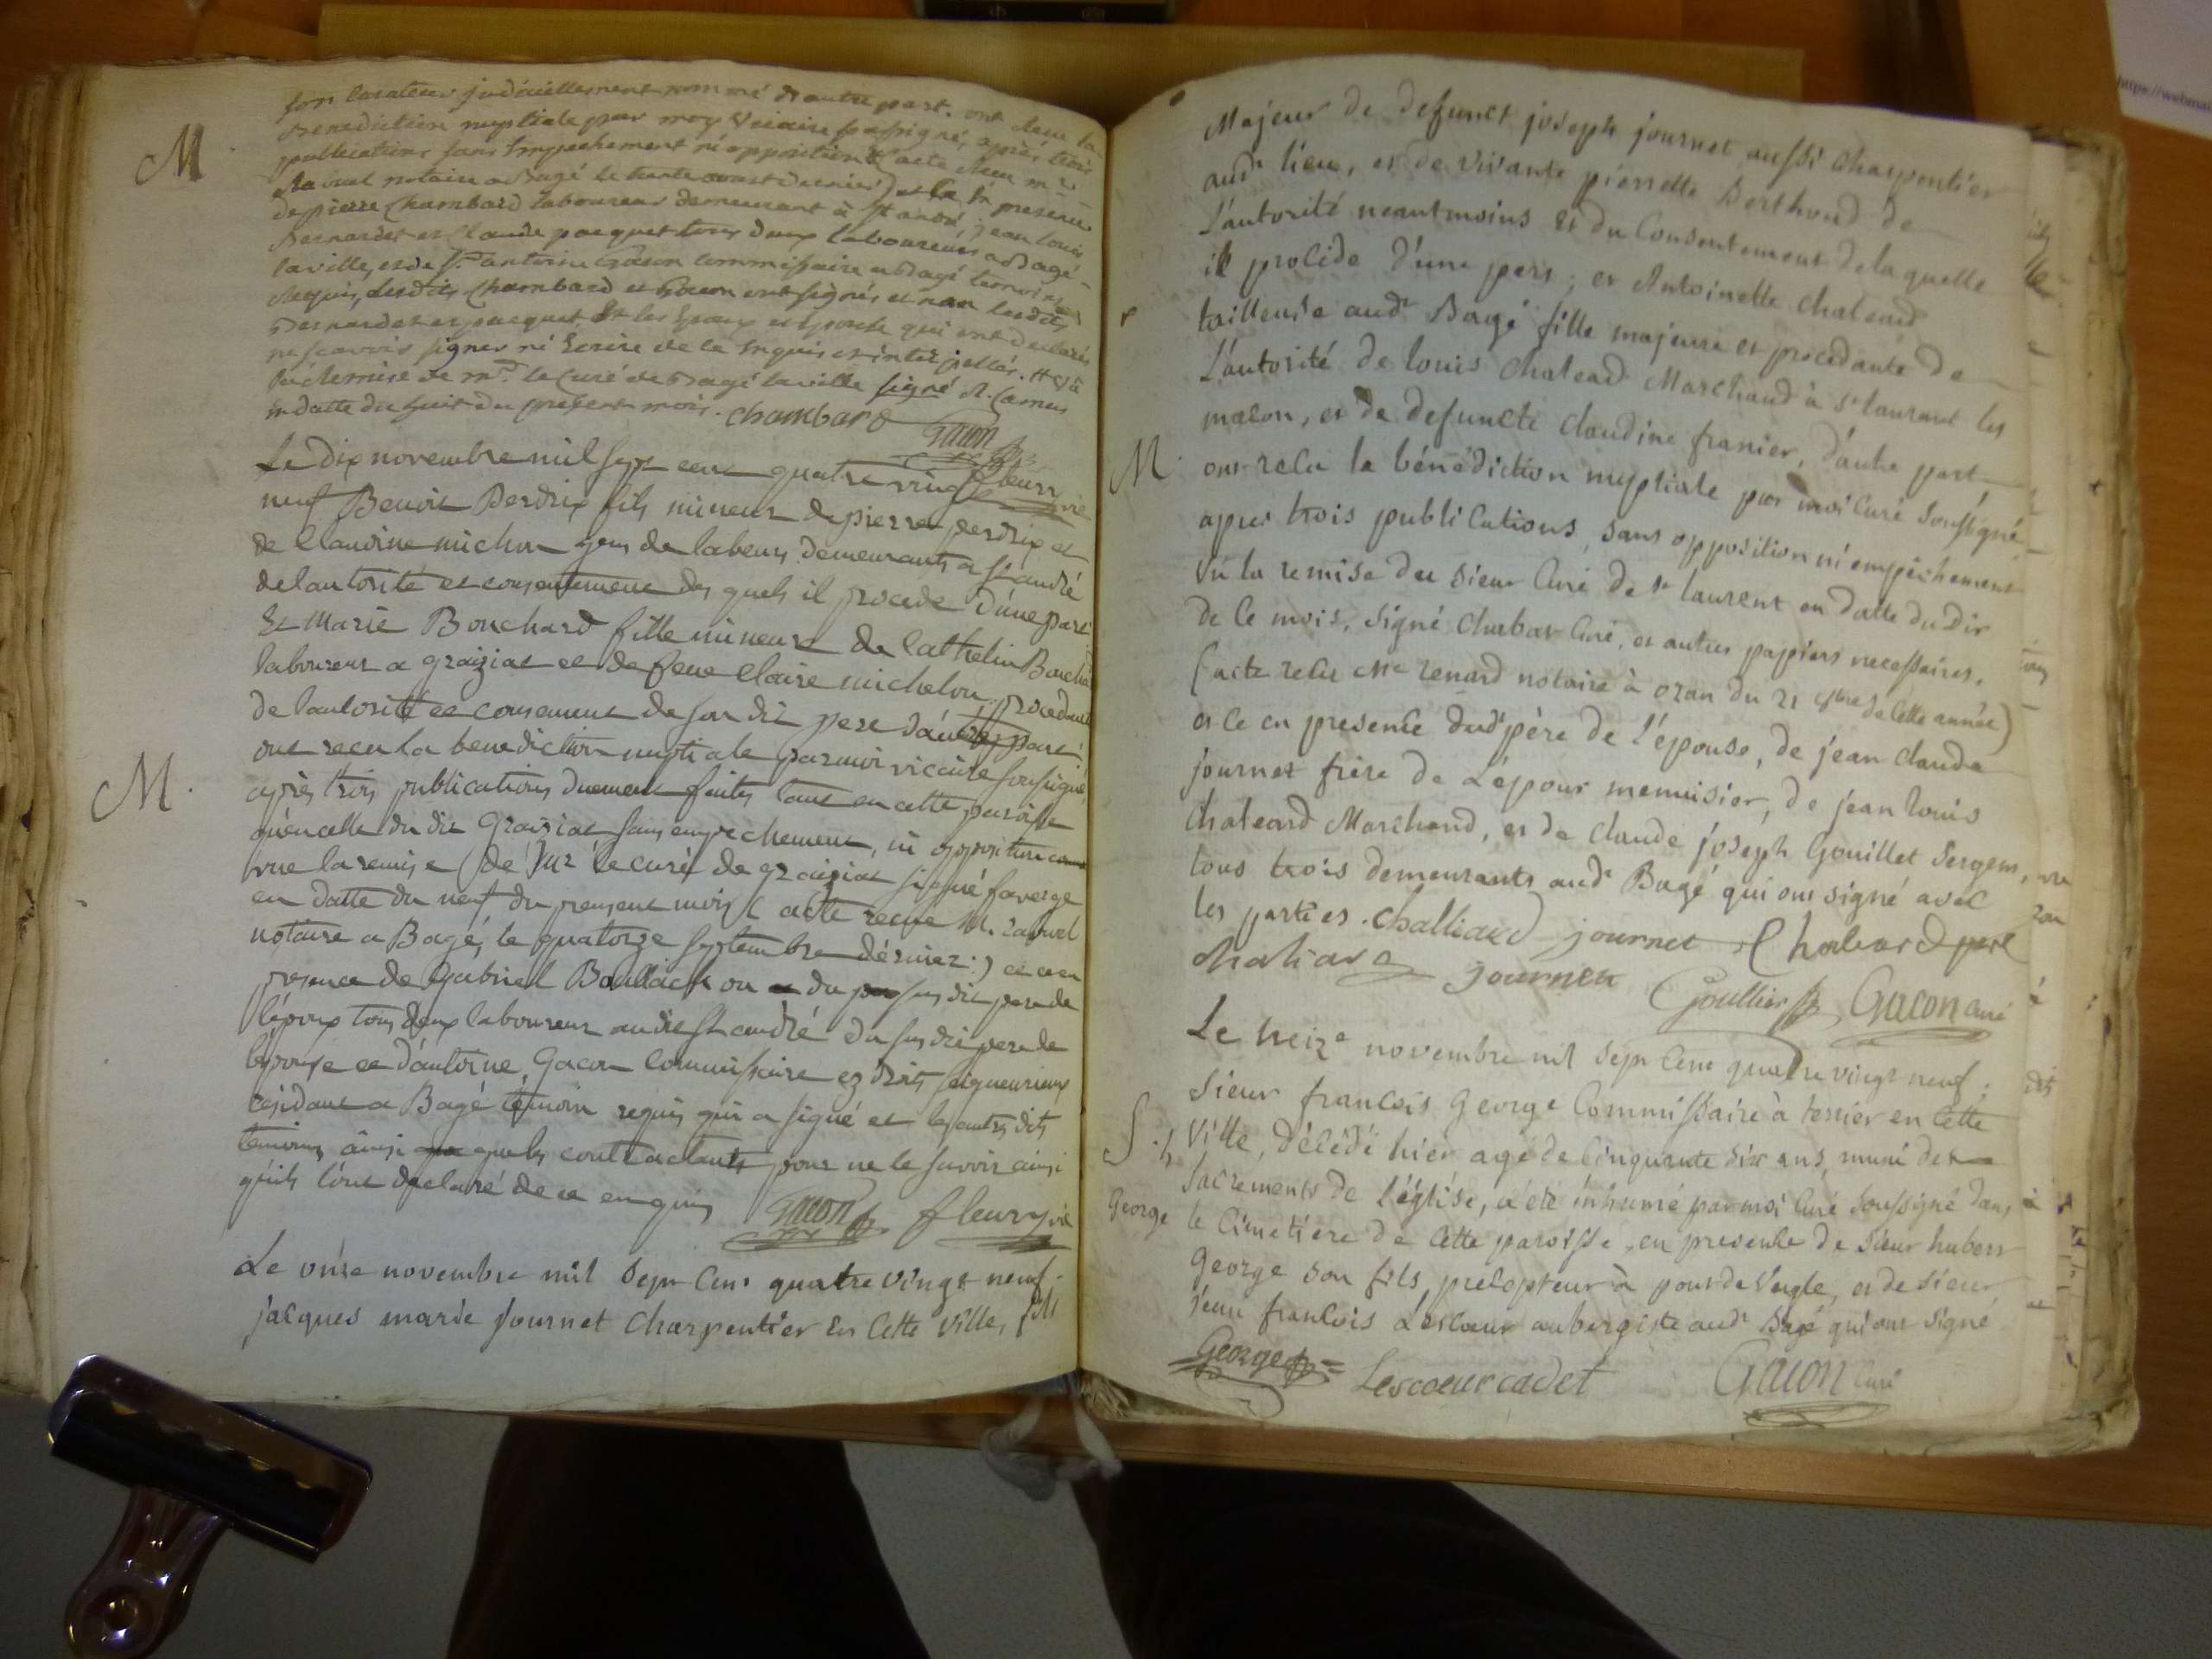 M
son Curateur judiciellement nommé d'autre part. ont Receu la
Benediction nuptiale par moy Vicaire soussigné, après trois
publications sans Empechement ni opposition (acte Receu me
Rabuel notaire a Bagé le trente aoust dernier) et ce En presence
de pierre Chambard laboureur demeurant à St andré, jean louis
Bernardet et Claude pacquet tous deux laboureurs a Bagé
la ville, et de sr antoine Gacon Commissaire a Bagé temoins
Requis, lesdits Chambard et Gacon ont signés et non lesdits
Bernardet et pacquet Et les Epoux et Epouse qui ont declarés
ne scavoir signer ni Ecrire de ce Enquis et interpellés.
la remise de mr le Curé de Bagé la ville signé R. Camus
en datte du huit du present mois. chambard
Gacon
fleury vic
Le dix novembre mil sept cent quatre vingt
neuf Benoit Perdrix fils mineur de pierre perdrix et
de Claudine michon gens de labeurs demeurants a St andré
de lautorité et consentement des quels il procede d'une part
Et Marie Bouchard fille mineure de Cathelin Bouchard
laboureur a graiziat et de feue Claire michelon, procedant
de lautorité et consement de son dit pere d'autre part
ont receu la benediction nuptiale par moi vicaire soussigné,
M.
après trois publications duement faites tant en cette paroisse
qu'en celle du dit Graiziat sans empechement, ni opposition
vue la remise de Mr le curé de graiziat signé faverge
en datte du neuf du present mois (acte recue M. Rabuel
notaire a Bagé, le quatorze septembre dérnier:) et ce en
presence de Gabriel du susdit pere de
l'époux tous deux laboureur au dit St andré du susdit pere de
l'épouse et d'antoine Gacon Commissaire ez droits seigneuriaux
résidant a Bagé témoin requis qui a signé et les autres dits
temoins ainsi que les contractants pour ne le savoir ainsi
qu'ils l'ont declaré de ce enquis Gacon fleury vic
Le onze novembre mil sept cent quatre vingt neuf.
jacques marie Journet Charpentier En Cette Ville, fils
Majeur de defunct joseph journet aussi Charpentier
audt lieu, et de vivante pierrette Berthoud de
L'autorité neantmoins Et du Consentement de laquelle
il procède d'une part; et Antoinette Chaleard
tailleuse audt Bagé fille majeure et procédante de
L'autorité de louis Chaleard Marchand à St laurent les
macon, et de defuncte Claudine franier, d'autre part
M
ont recu la bénédiction nuptiale par moi Curé Soussigné
apres trois publications, sans opposition ni empêchement
Vû la remise du Sieur Curé de St laurent en datte du Dix
de Ce mois, signé Chabar Curé, et autres papiers necessaires,
(acte recu Me renard notaire à ozan du 21 9bre de Cette année)
et ce en presence dudt père de l'épouse, de jean Claude
journet frère de L'époux menuisier, de jean louis
Chaleard Marchand, et de Claude joseph Gouillet Sergent,
tous trois demeurants audt Bagé qui ont signé avec
les parties. Challiard journet Chaleard pere
chaliard journet Goullier Gacon curé
Le treize novembre mil Sept Cent quatre vingt neuf;
Sieur francois George Commissaire à terrier en Cette
S.
Ville, Décédé hier agé de Cinquante Six ans, muni des
Sacrements de l'église, a été inhumé par moi Curé Soussigné dans
George
le Cimetière de Cette paroisse, en presence de Sieur hubert
George Son fils, précepteur à pont de Veyle, et de Sieur
jean francois Lescoeur aubergiste audt Bagé qui ont Signé
George Lescoeur cadet Gacon Curé